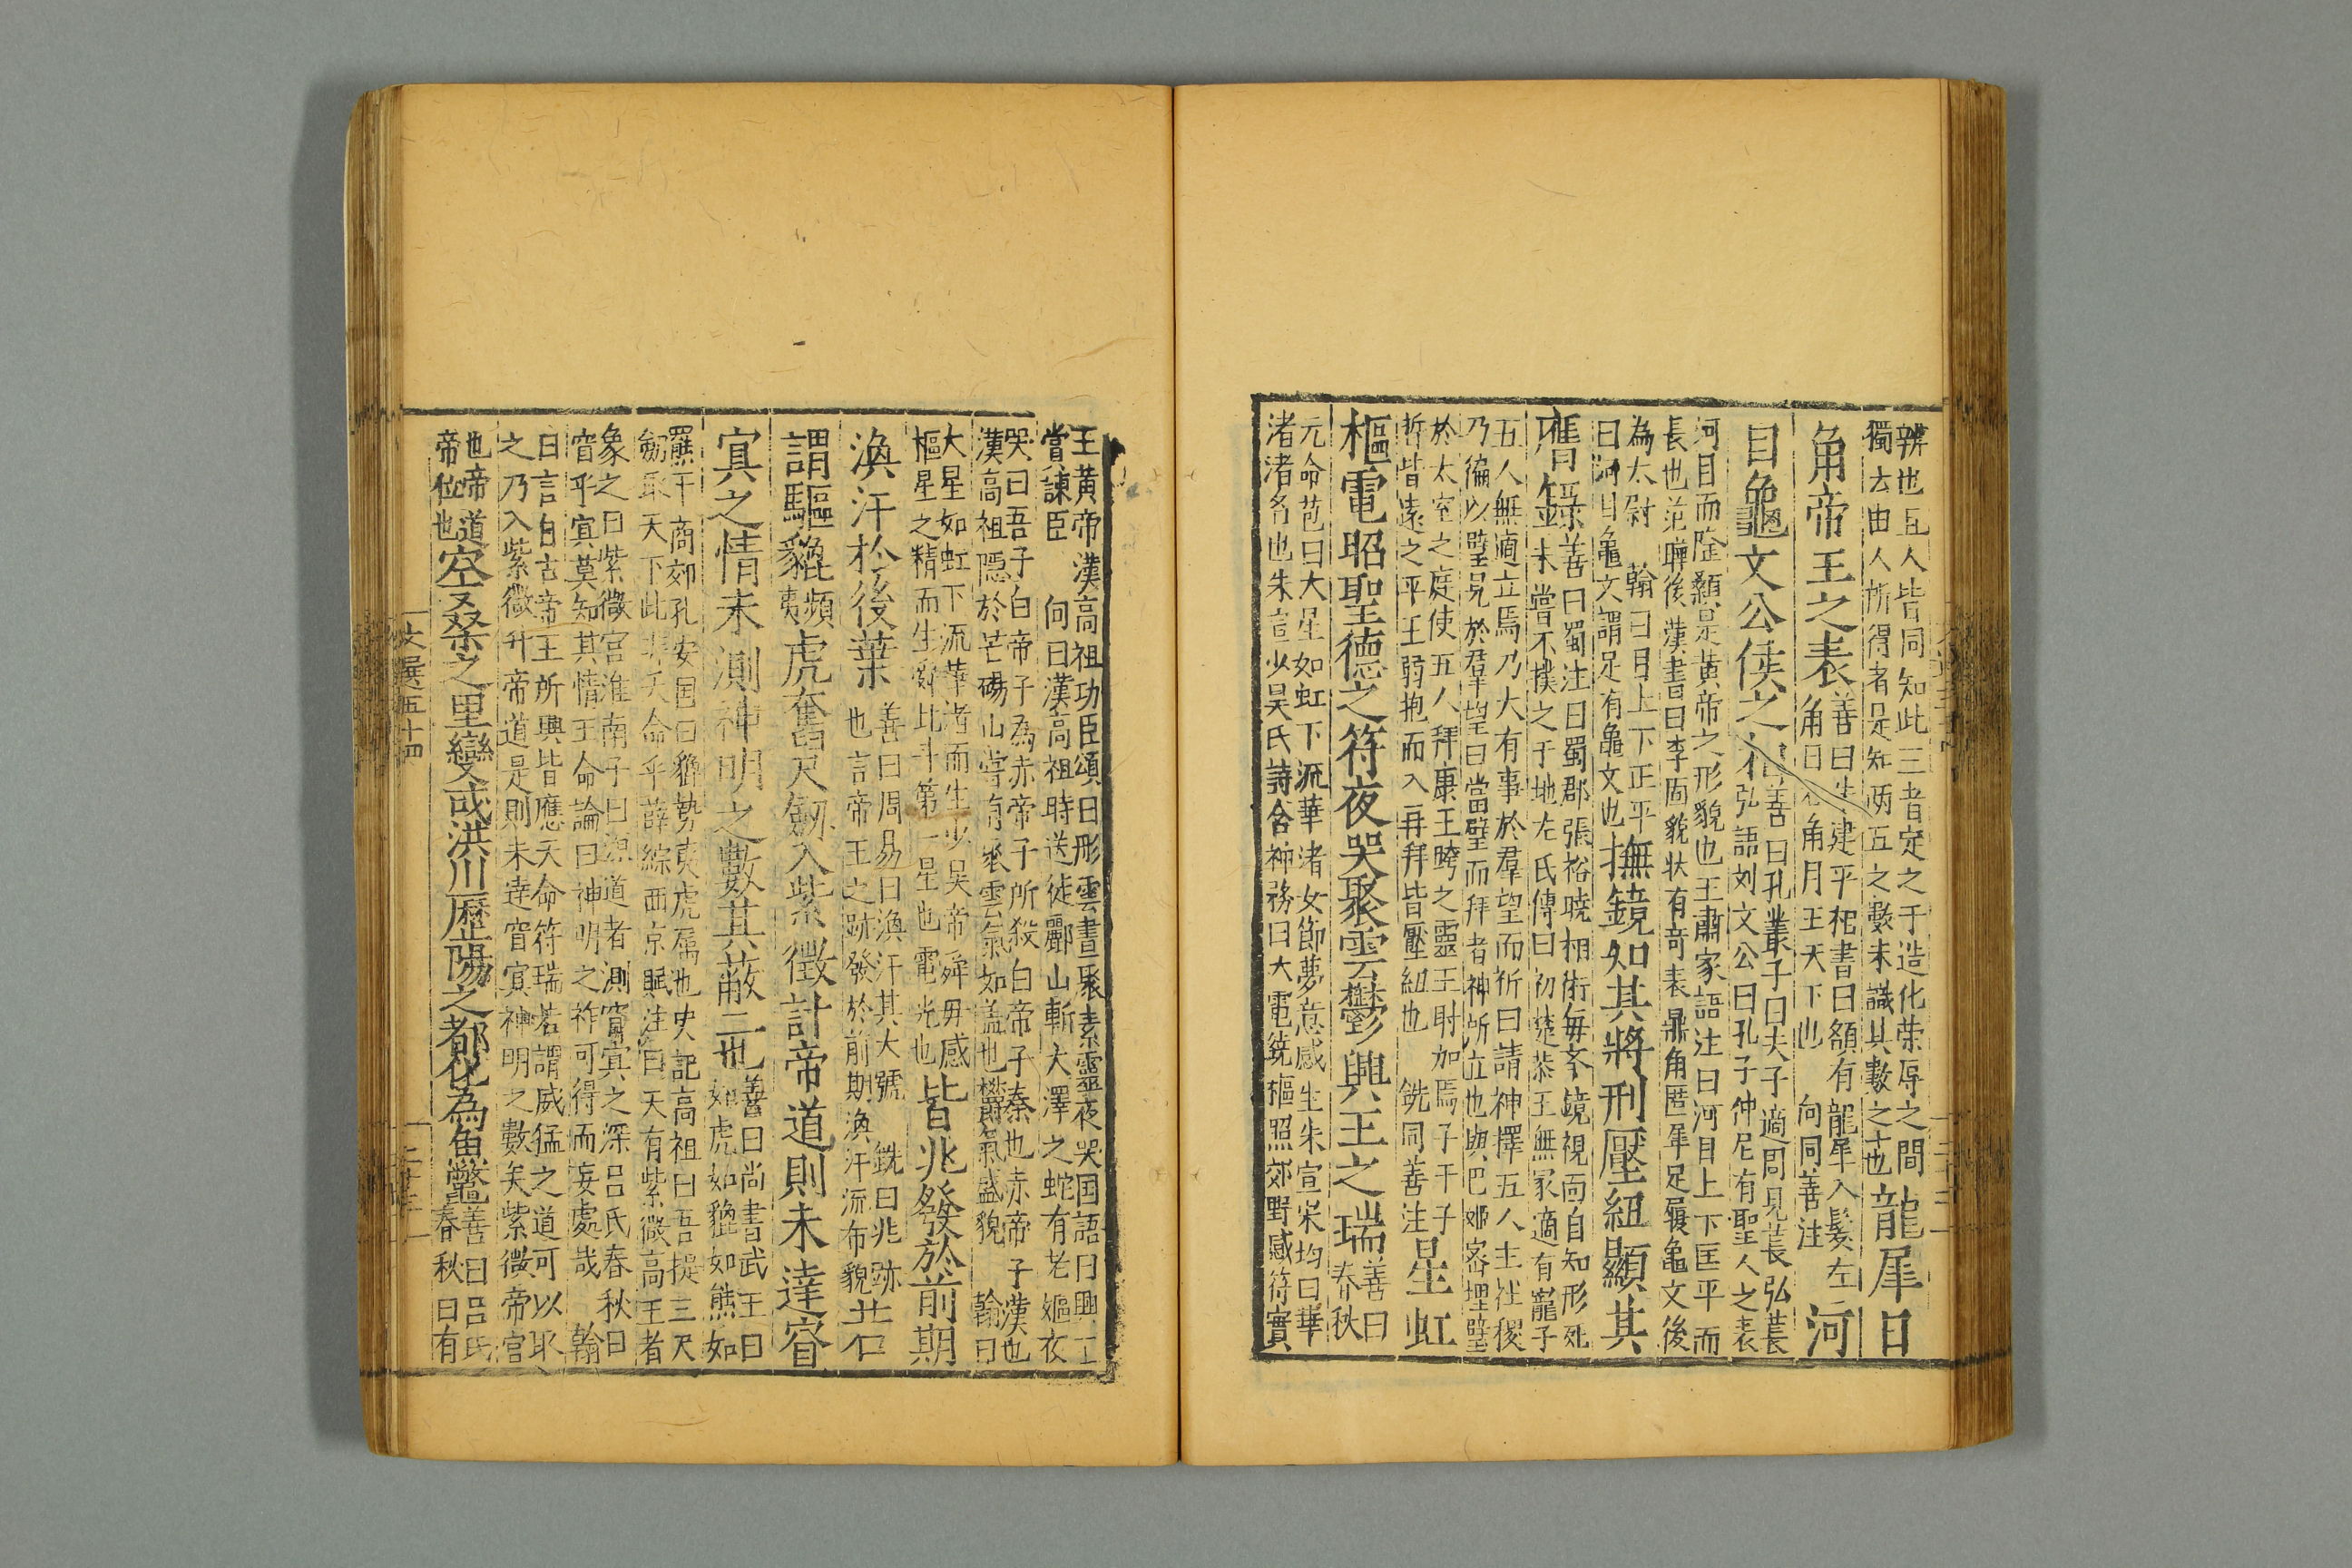 辨也五人皆同知此三者定之于造化榮辱之間
獨去由人所得者是知兩五之數未識其數之十也
龍犀日
角帝王之表
善曰 建平 書曰額有龍犀入髮左
角日 角月王天下也 向同善注
河
目龜文公侯之相
善曰孔叢子曰夫子適周見萇弘萇
弘語刘文公曰孔子仲尼有聖人之表
河目而隆顙是黄帝之形貌也王肅家語注曰河目上下匡平而
長也范曄後漢書曰李固貌狀有奇表鼎角匿犀足履龜文後
為太尉 翰曰目上下正平
曰河目龜文謂足有龜文也
撫鏡如其將刑壓紐顯其
膺錄
善曰蜀注曰蜀郡張裕曉相術每 鏡視面自知形死
未嘗不撲之于地左氏傳曰初楚恭王無冢適有寵子
五人無適立焉乃大有事於羣望而祈曰請神擇五人主社稷
乃徧以璧見於羣望曰當璧而拜者神所立也與巴姬密埋璧
於太室之庭使五人拜康王跨之靈王肘加焉子干子
晳皆遠之平王弱抱而入再拜皆壓紐也 銑同善注
星虹
樞電昭聖德之符夜哭聚雲鬱興王之瑞
善曰
春秋
元命苞曰大星如虹下流華渚女節夢意感生朱宣宋均曰華
渚渚名也朱宣少昊氏詩含神務曰大電繞樞照郊野感符寶
王黄帝漢高祖功臣頌曰彤雲晝聚素靈夜哭国語曰興王
賞諫臣 向曰漢高祖時送徒酈山斬大澤之蛇有老嫗夜
哭曰吾子白帝子為赤帝子所殺白帝子秦也赤帝子漢也
漢高祖隱於芒碭山嘗有聚雲氣如盖也欝氣盛貌 翰曰
大星如虹下流華渚而生少昊帝舜毋感
樞星之精而生舜北斗第一星也電光也
皆兆發於前期
渙汗於後葉
善曰周易曰渙汗其大號 銑曰兆跡
也言帝王之跡發於前期渙汗流布貌
若
謂驅貔
頻
夷
虎奮尺劔入紫微計帝道則未達窅
冥之情未測神明之數其蔽二也
善曰尚書武王曰
如虎如貔如熊如
羆于商郊孔安国曰貔執夷虎属也史記高祖曰吾提三尺
劔取天下此非天命乎薛綜西京賦注曰天有紫微高王者
象之曰紫微宮淮南子曰 道者測窅冥之深吕氏春秋曰
窅乎冥莫知其情王命論曰神明之祚可得而妄處哉 翰
曰言自古帝王所興皆應天命符瑞若謂威猛之道可以取
之乃入紫微升帝道是則未達窅冥神明之數矣紫微帝宮
也帝道
帝位也
空桑之里變成洪川歷陽之都化為魚鼈
善曰吕氏
春秋曰有
文選五十四